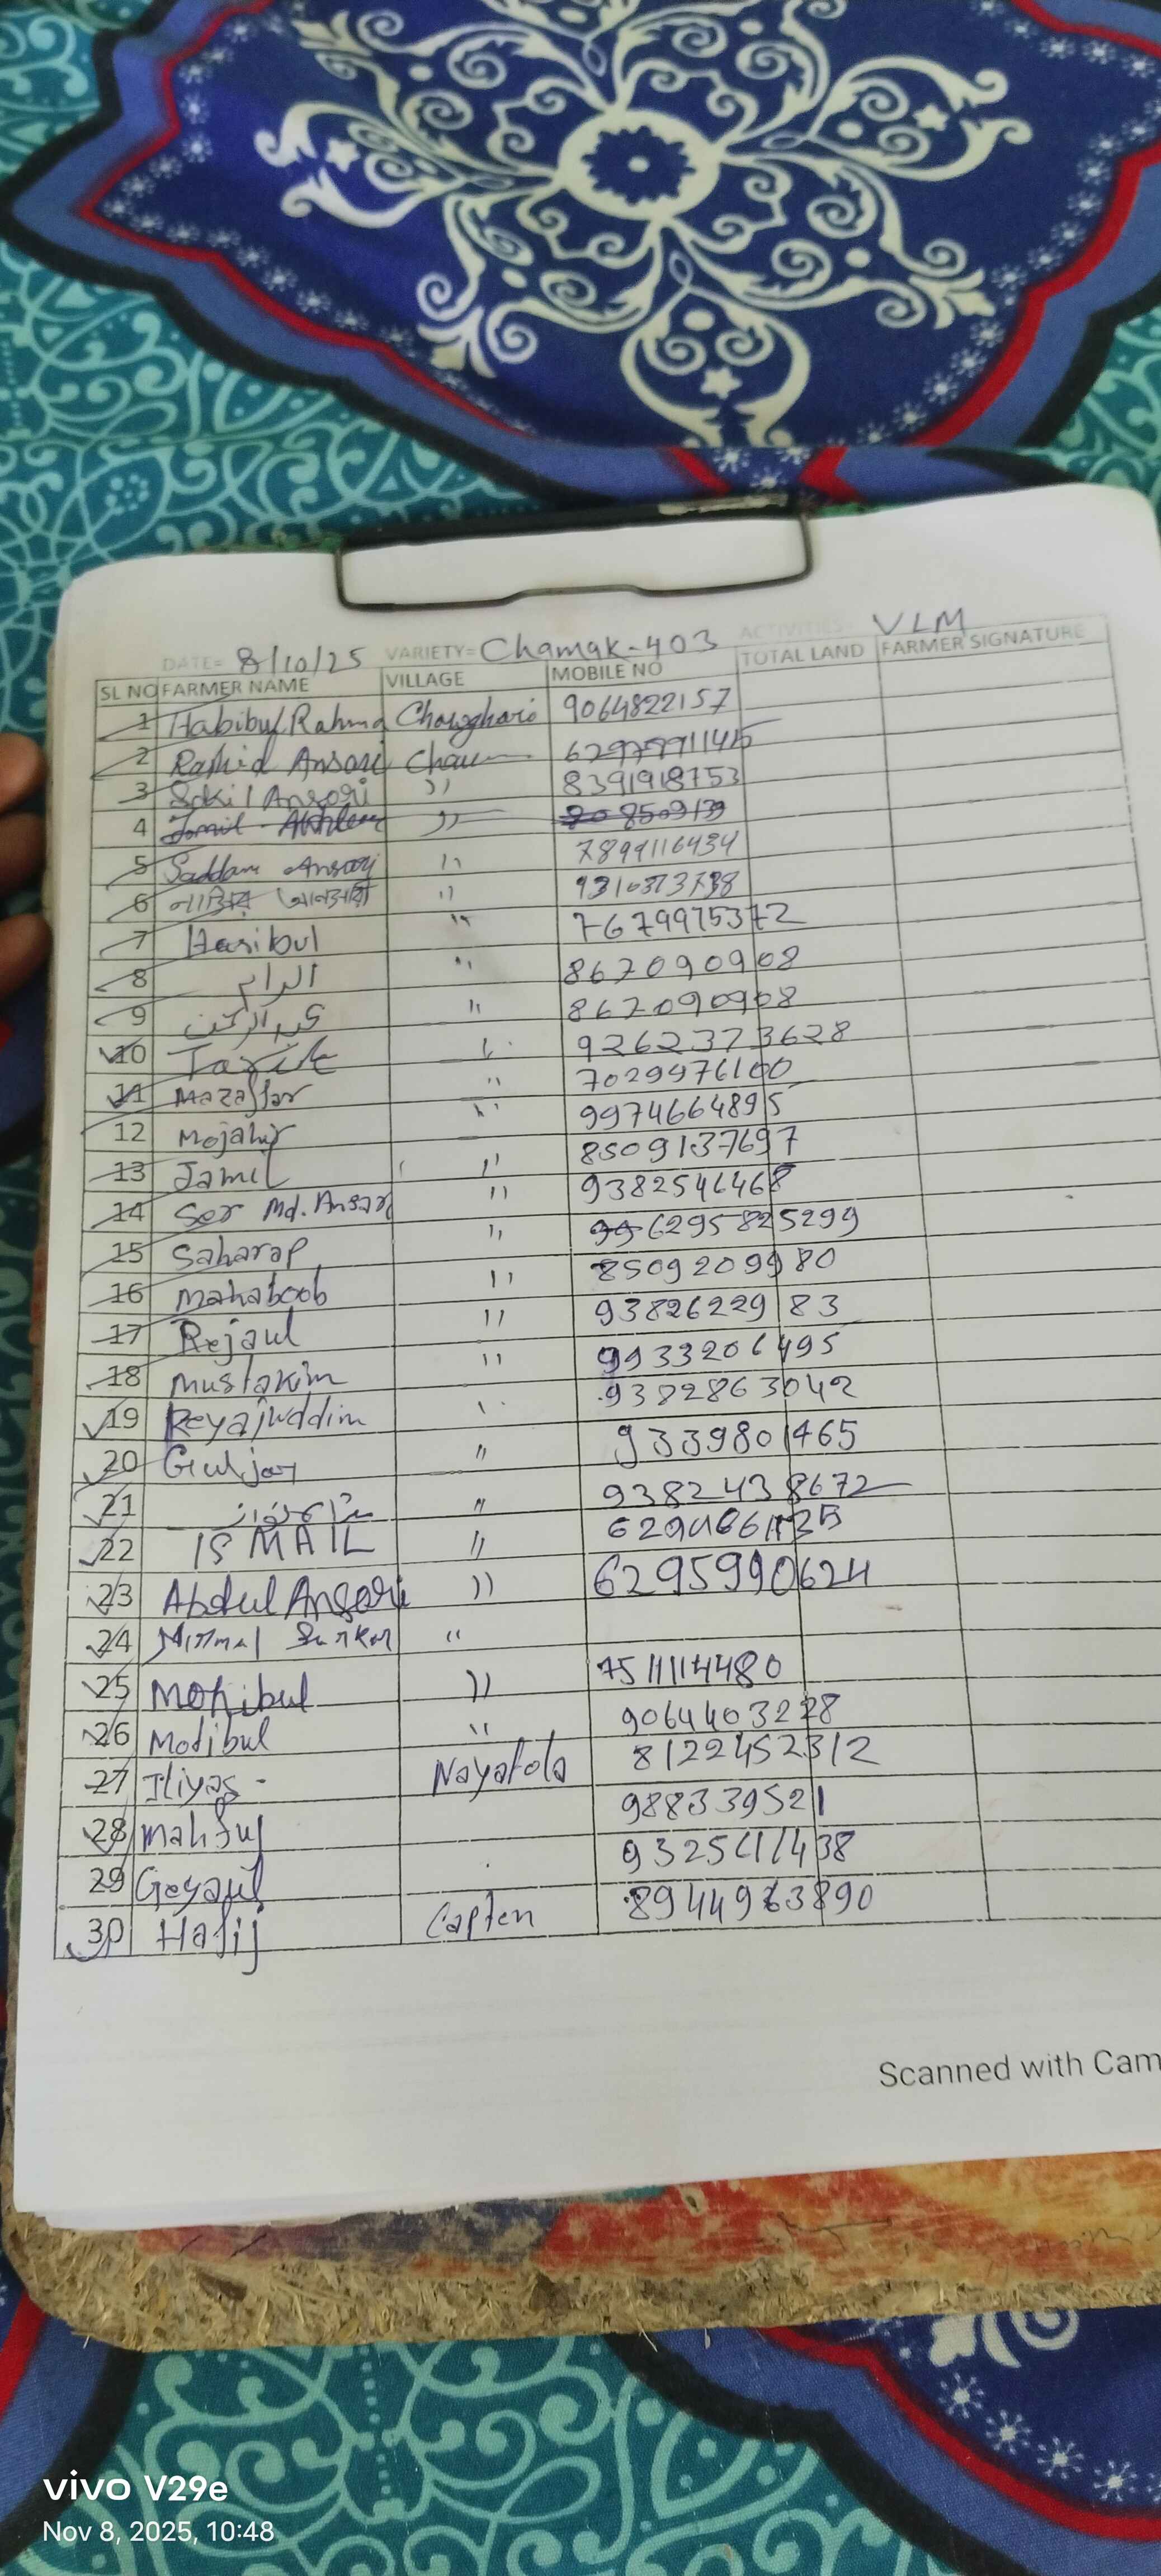 DATE= 8/10/25 VARIETY= Chamak-403 ACTIVITIES- VLM
SL NO FARMER NAME VILLAGE MOBILE NO TOTAL LAND FARMER SIGNATURE
1 Habibul Rahma Chowghari 9064822157
2 Rashid Ansari Chau
3 Sakil Ansari " 8391918753
4 Jamil " 8509139
5 Saddam Ansari " 7899116434
6 আনসারী "
7 Hasibul " 7679975372
8 " 867090908
9 " 867090908
10 Tarik " 9262373628
11 Mazaffar " 7029976100
12 Mojahir " 9974664895
13 Jamil " 8509137697
14 Ser Md. Ansari " 9382546468
15 Saharap " 6295825299
16 Mahaboob " 8509209980
17 Rejaul " 9382622983
18 Mustakim " 9933206495
19 Reyajuddim " 9382863042
20 Guljar " 9339801465
21 " 9382438672
22 ISMAIL "
23 Abdul Ansari " 6295990624
24 Nirmal Sarkar "
25 Mohibul " 7511114480
26 Motibul " 9064403228
27 Iliyas - Nayatola 8122452312
28 Mahfuj 988339521
29 Geyajul
30 Hafij Capten 8944963890
Scanned with Cam
vivo V29e
Nov 8, 2025, 10:48